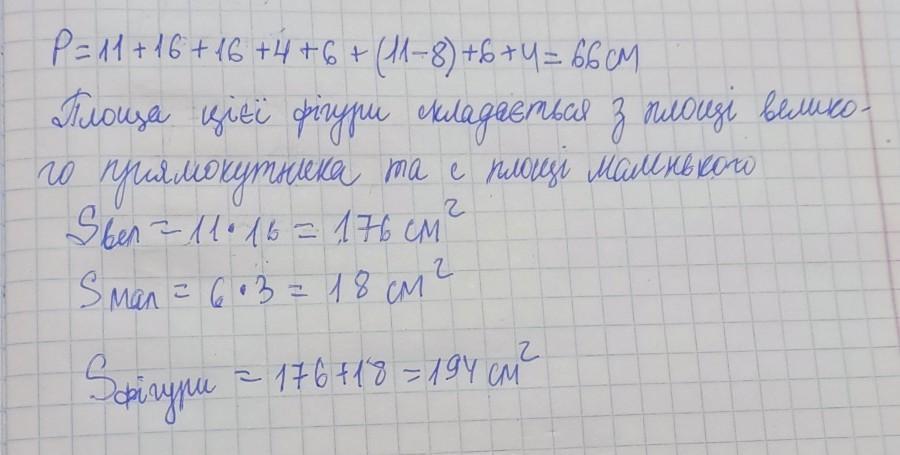 P = 11 + 16 + 16 + 4 + 6 + (11 - 8) + 6 + 4 = 66 см
Площа цієї фігури складається з площі велико-
го прямокутника та с площі маленького
Sвел = 11 · 16 = 176 см²
Sмал = 6 · 3 = 18 см²
Sфігури = 176 + 18 = 194 см²